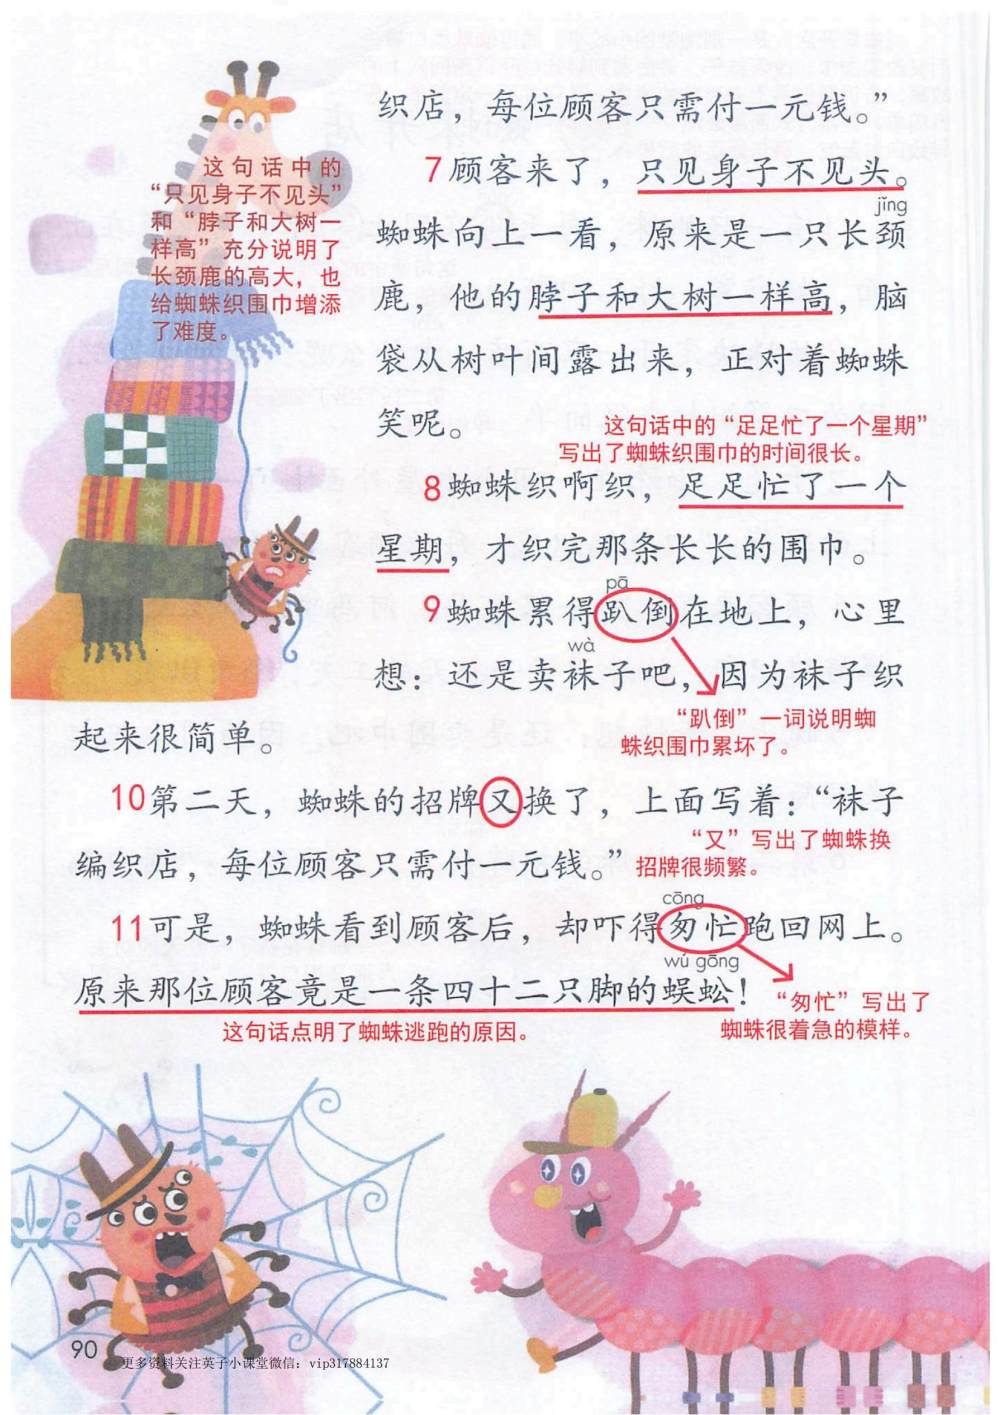 织店，每位顾客只需付一元钱。”
7顾客来了，只见身子不见头。
jǐng
蜘蛛向上一看，原来是一只长颈
鹿，他的脖子和大树一样高，脑
袋从树叶间露出来，正对着蜘蛛
笑呢。
这句话中的
“只见身子不见头”
和“脖子和大树一
样高”充分说明了
长颈鹿的高大，也
给蜘蛛织围巾增添
了难度。
这句话中的“足足忙了一个星期”
写出了蜘蛛织围巾的时间很长。
8蜘蛛织啊织，足足忙了一个
星期，才织完那条长长的围巾。
pā
9蜘蛛累得趴倒在地上，心里
wà
想：还是卖袜子吧，因为袜子织
起来很简单。
“趴倒”一词说明蜘
蛛织围巾累坏了。
10第二天，蜘蛛的招牌又换了，上面写着：“袜子
编织店，每位顾客只需付一元钱。”
“又”写出了蜘蛛换
招牌很频繁。
cōng
11可是，蜘蛛看到顾客后，却吓得匆忙跑回网上。
wú gōng
原来那位顾客竟是一条四十二只脚的蜈蚣！
这句话点明了蜘蛛逃跑的原因。
“匆忙”写出了
蜘蛛很着急的模样。
90
更多资料关注英子小课堂微信：vip317884137